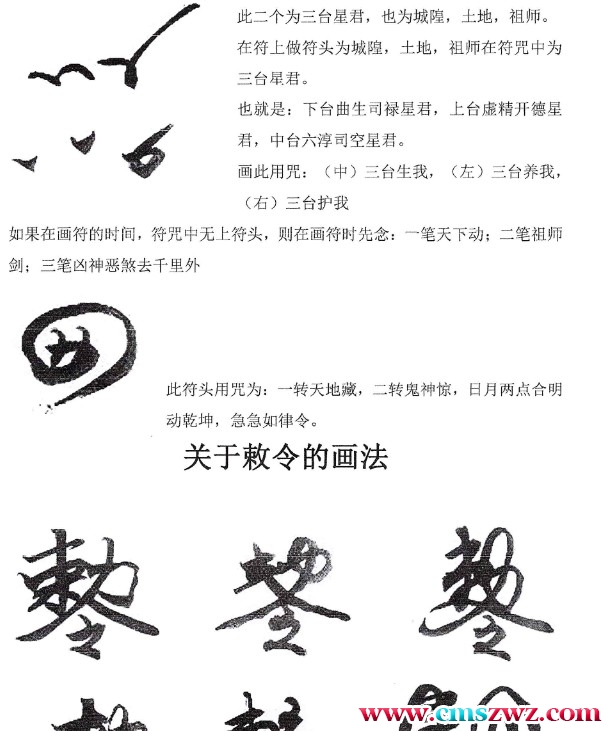 此二个为三台星君，也为城隍，土地，祖师。
在符上做符头为城隍，土地，祖师在符咒中为
三台星君。
也就是：下台曲生司禄星君，上台虚精开德星
君，中台六淳司空星君。
画此用咒：（中）三台生我，（左）三台养我，
（右）三台护我
如果在画符的时间，符咒中无上符头，则在画符时先念：一笔天下动；二笔祖师
剑；三笔凶神恶煞去千里外
此符头用咒为：一转天地藏，二转鬼神惊，日月两点合明
动乾坤，急急如律令。
关于敕令的画法
www.cmszwz.com